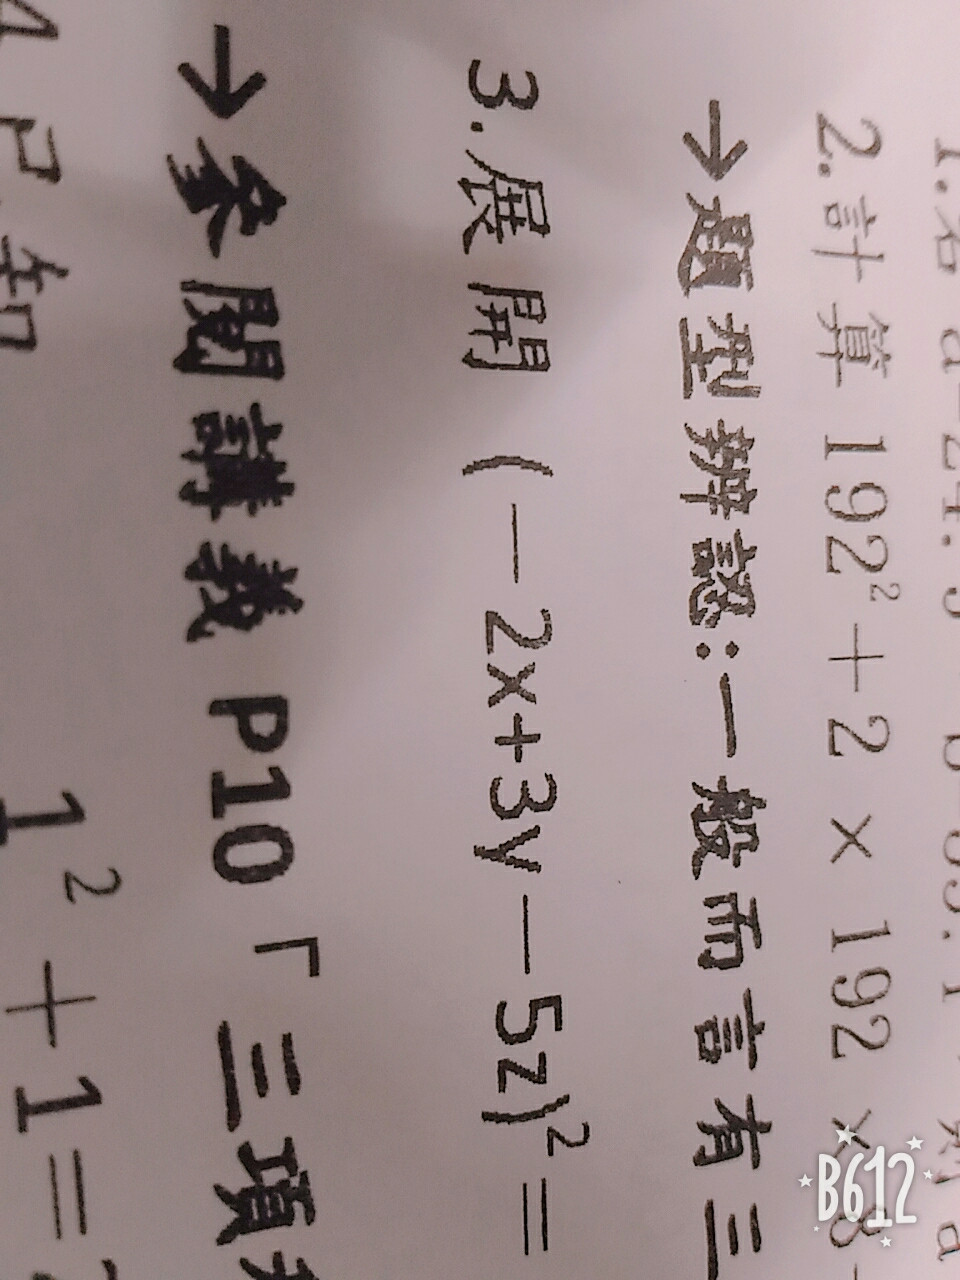 1.若 a=24.5 b=
2.計算 192²+2 × 192 × 8
→題型辨認:一般而言有三
3.展開 (－2x+3y－5z)² =
→參閱講義 P10「三項
已知
1² + 1 =
B612